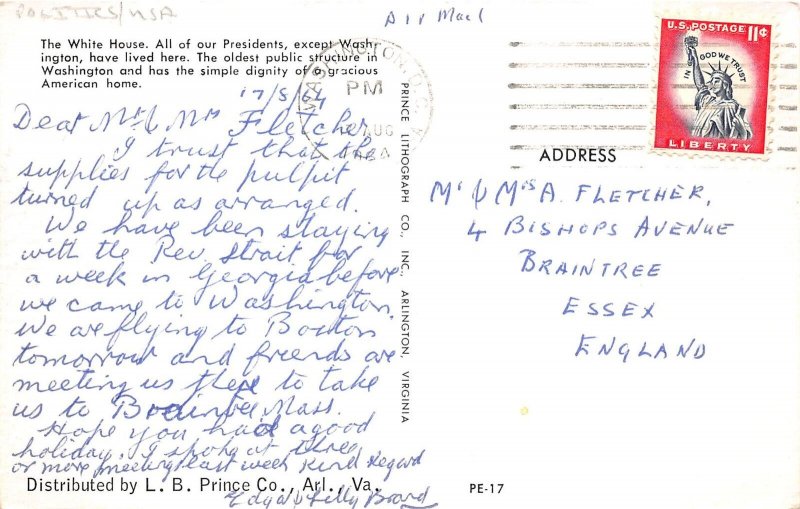 POLITICS/USA
Air Mail
The White House. All of our Presidents, except Wash-
ington, have lived here. The oldest public structure in
Washington and has the simple dignity of a gracious
American home.
17/8/64
Dear Mr & Mrs Fletcher,
I trust that the
supplies for the pulpit
turned up as arranged.
We have been staying
with the Rev. Strait for
a week in Georgia before
we came to Washington.
We are flying to Boston
tomorrow and friends are
meeting us there to take
us to Braintree Mass.
Hope you had a good
holiday. I spoke at three
or more meetings last week Kind Regard
Edga & Lilly Board
Distributed by L. B. Prince Co., Arl., Va.
PRINCE LITHOGRAPH CO., INC., ARLINGTON, VIRGINIA
WASHINGTON, D.C.
PM
AUG
U.S. POSTAGE 11¢
IN GOD WE TRUST
LIBERTY
ADDRESS
Mr & Mrs A. FLETCHER,
4 BISHOPS AVENUE
BRAINTREE
ESSEX
ENGLAND
PE-17